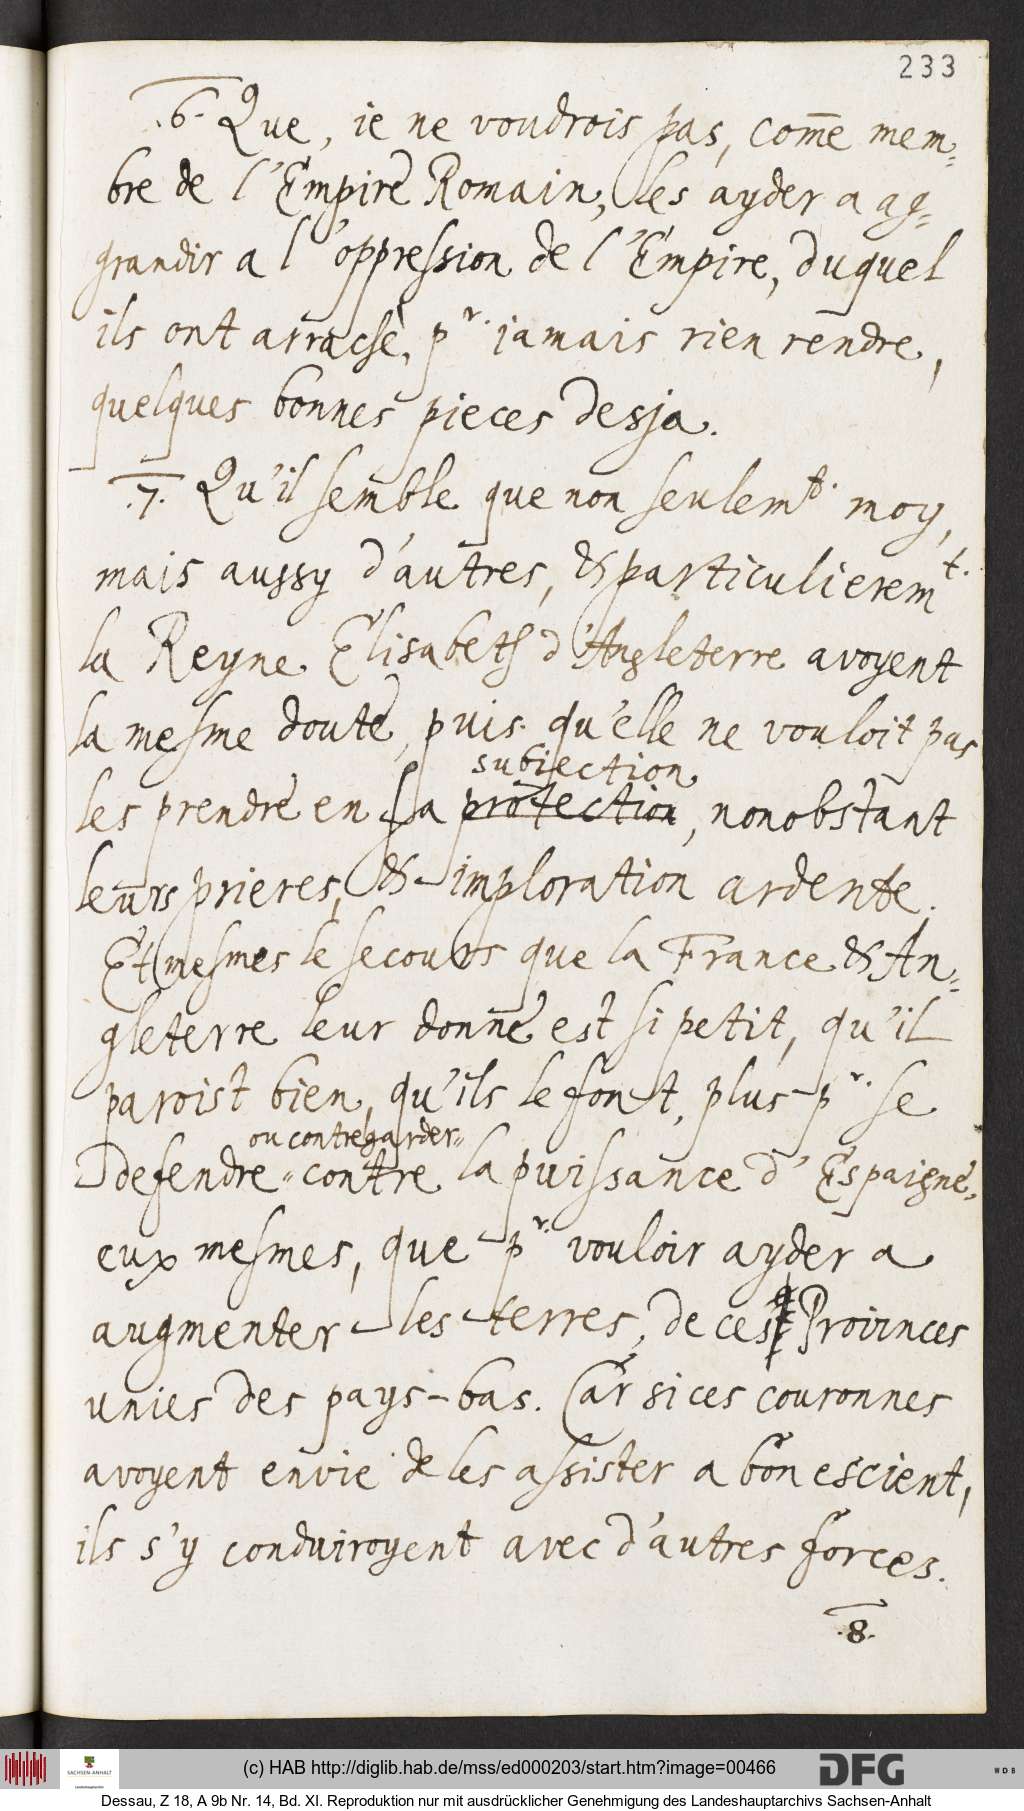 233
.6. Que, ie ne voudrois pas, com̄e mem-
bre de l'Empire Romain, les ayder a ag-
grandir a l'oppression de l'Empire, duquel
ils ont arrachè, pr. jamais rien rendre,
quelques bonnes pieces desja.
.7. Qu'il semble que non seulemt. moy,
mais aussy d'autres, & particulieremt.
la Reyne Elisabeth d'Angleterre avoyent
la mesme doute, puis qu'elle ne vouloit pas
subjection
les prendre en sa protection, nonobstant
leurs prieres, & imploration ardente.
Et mesmes le secours que la France & An-
gleterre leur donne est si petit, qu'il
paroist bien, qu'ils le font, plus pr. se
ou contregarder"
defendre" contre la puissance d'Espaigne,
eux mesmes, que pr. vouloir ayder a
augmenter les terres, de ces Provinces
unies des pays-bas. Car si ces couronnes
avoyent envie de les assister a bon escient,
ils s'y conduiroyent avec d'autres forces.
.8.
SACHSEN-ANHALT
(c) HAB http://diglib.hab.de/mss/ed000203/start.htm?image=00466
DFG
WDB
Dessau, Z 18, A 9b Nr. 14, Bd. XI. Reproduktion nur mit ausdrücklicher Genehmigung des Landeshauptarchivs Sachsen-Anhalt